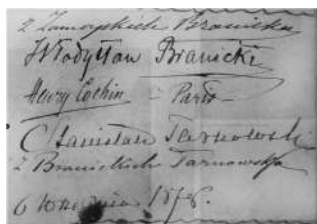 z Zamoyskich Branicka
Władysław Branicki
Henry Cochin - Paris -
Stanisław Tarnowski
z Branickich Tarnowska
6 Września 1878.